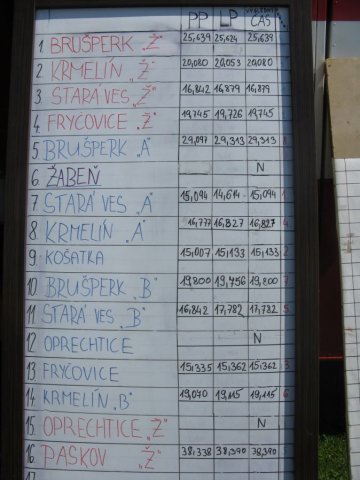 PP LP VÝSLEDNÝ ČAS
1. BRUŠPERK „Ž" 25,639 25,624 25,639
2. KRMELÍN „Ž" 20,080 20,053 20,080
3. STARÁ VES „Ž" 16,842 16,879 16,879
4. FRYČOVICE „Ž" 19,745 19,726 19,745
5 BRUŠPERK „A" 29,097 29,313 29,313 8
6. ŽABEŇ N
7 STARÁ VES „A" 15,094 14,614 15,094 1
8 KRMELÍN „A" 16,777 16,827 16,827 4
9. KOŠATKA 15,007 15,133 15,133 2
10 BRUŠPERK „B" 19,800 19,456 19,800 7
11 STARÁ VES „B" 16,842 17,782 17,782 5
12 OPRECHTICE N
13. FRYČOVICE 15,335 15,362 15,362 3
14. KRMELÍN „B" 19,040 19,115 19,115 6
15. OPRECHTICE „Ž" N
16. PASKOV „Ž" 38,338 38,390 38,390